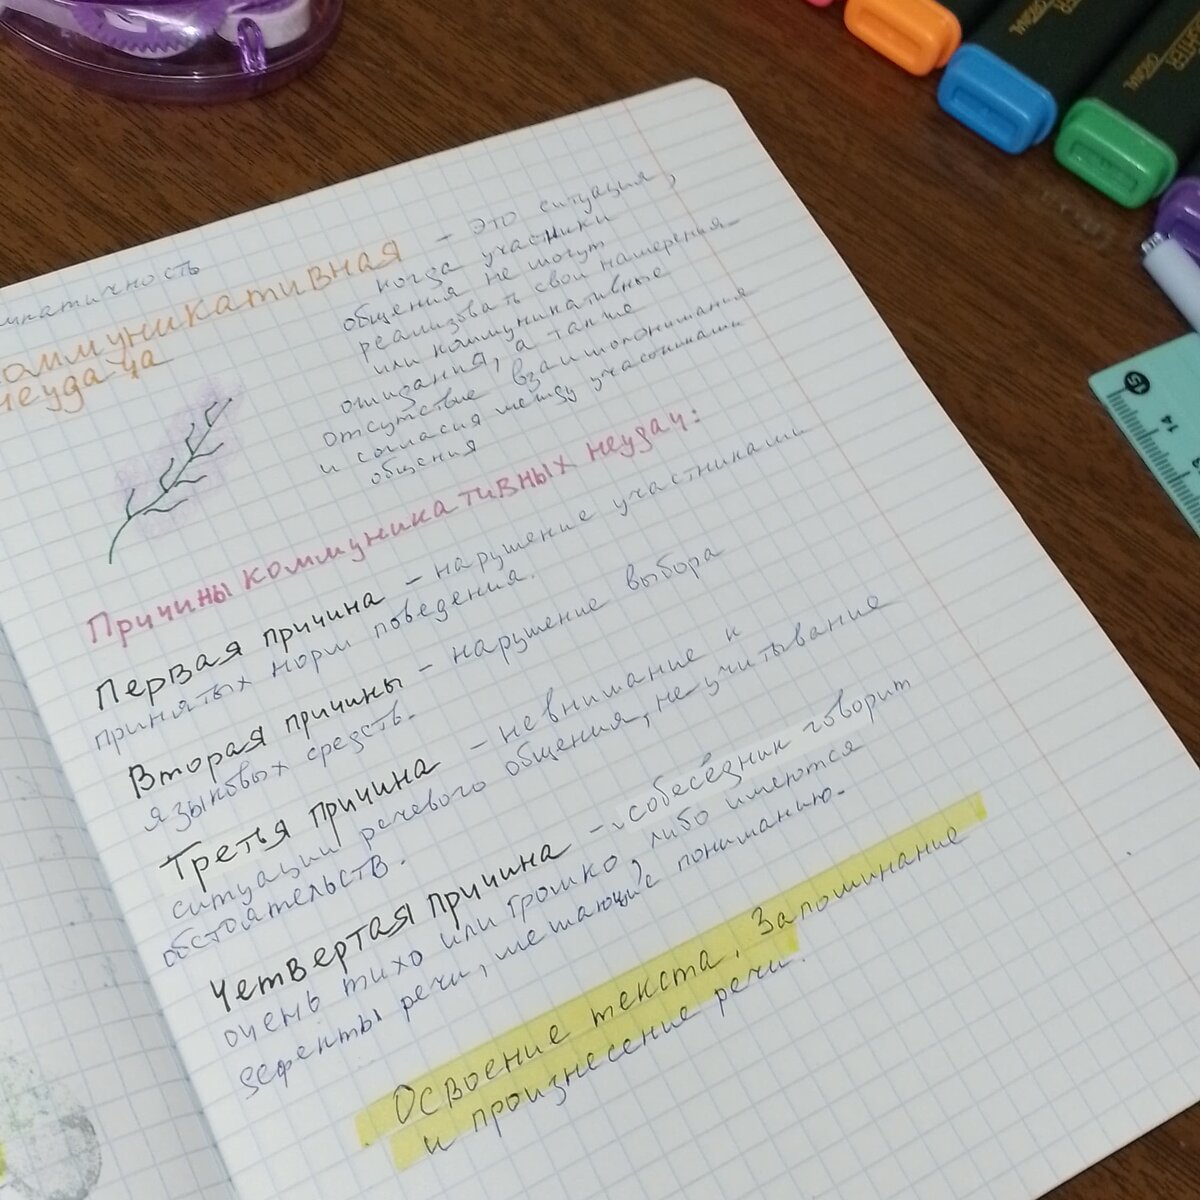 Коммуникативная
неудача
– это ситуация,
когда учасники
общения не могут
реализовать свои намеренья
или коммуникативные
ожидания, а также
отсутствие взаимопонимания
и согласия между участниками
общения
Причины коммуникативных неудач:
Первая причина – нарушение участниками
принятых норм поведения.
Вторая причины – нарушение выбора
языковых средств.
Третья причина – невнимание к
ситуации речевого общения, не учитывание
обстоятельств.
Четвертая причина – собеседник говорит
очень тихо или громко, либо имеются
дефекты речи, мешающие пониманию.
Освоение текста. Запоминание
и произнесение речи.
ORIGINAL
ORIGINAL
15
14